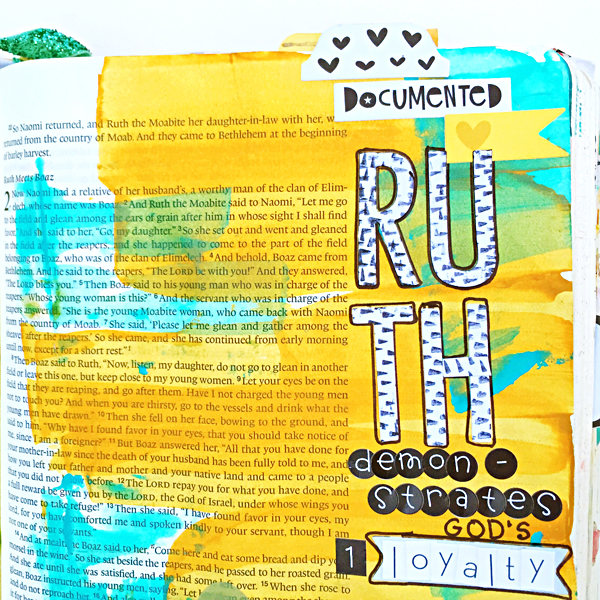 22So Naomi returned, and Ruth the Moabite her daughter-in-law with her, w
returned from the country of Moab. And they came to Bethlehem at the beginning
of barley harvest.
Ruth Meets Boaz
2 Now Naomi had a relative of her husband's, a worthy man of the clan of Elim-
elech, whose name was Boaz. 2And Ruth the Moabite said to Naomi, "Let me go
to the field and glean among the ears of grain after him in whose sight I shall find
favor." And she said to her, "Go, my daughter." 3So she set out and went and gleaned
in the field after the reapers, and she happened to come to the part of the field
belonging to Boaz, who was of the clan of Elimelech. 4And behold, Boaz came from
Bethlehem. And he said to the reapers, "The LORD be with you!" And they answered,
"The LORD bless you." 5Then Boaz said to his young man who was in charge of the
reapers, "Whose young woman is this?" 6And the servant who was in charge of the
reapers answered, "She is the young Moabite woman, who came back with Naomi
from the country of Moab. 7She said, 'Please let me glean and gather among the
sheaves after the reapers.' So she came, and she has continued from early morning
until now, except for a short rest."1
8Then Boaz said to Ruth, "Now, listen, my daughter, do not go to glean in another
field or leave this one, but keep close to my young women. 9Let your eyes be on the
field that they are reaping, and go after them. Have I not charged the young men
not to touch you? And when you are thirsty, go to the vessels and drink what the
young men have drawn." 10Then she fell on her face, bowing to the ground, and
said to him, "Why have I found favor in your eyes, that you should take notice of
me, since I am a foreigner?" 11But Boaz answered her, "All that you have done for
your mother-in-law since the death of your husband has been fully told to me, and
how you left your father and mother and your native land and came to a people
that you did not before. 12The LORD repay you for what you have done, and
a full reward be given you by the LORD, the God of Israel, under whose wings you
have come to take refuge!" 13Then she said, "I have found favor in your eyes, my
lord, for you have comforted me and spoken kindly to your servant, though I am
not one of your servants."
14And at mealtime Boaz said to her, "Come here and eat some bread and dip
morsel in the wine." So she sat beside the reapers, and he passed to her roasted grain.
And she ate until she was satisfied, and she had some left over. 15When she rose to
glean, Boaz instructed his young men, saying, "Let
and do not reproach her.
DOCUMENTED
RU
TH
demon -
strates
GOD'S
1 loyalty